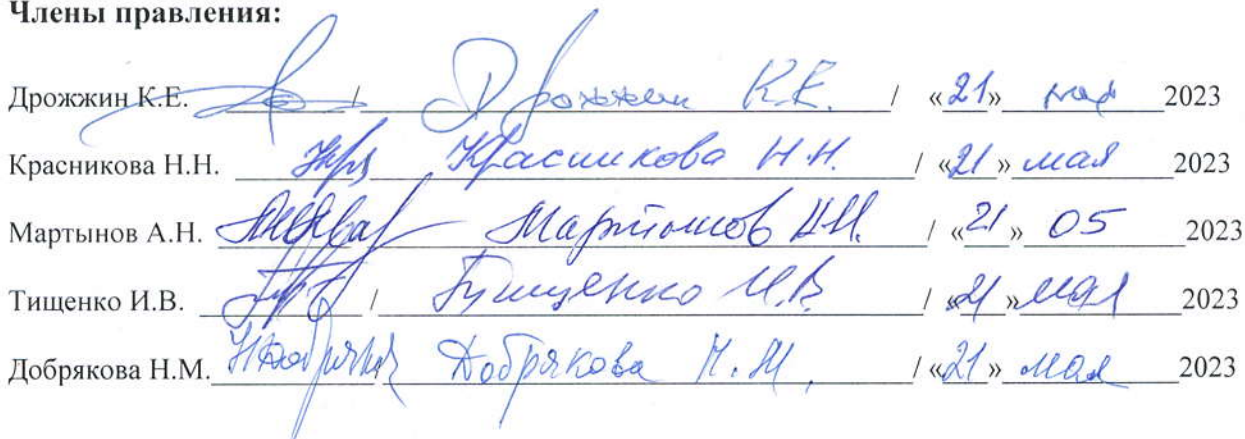 Члены правления:
Дрожжин К.Е. / Дрожжин К.Е. / «21» мая 2023
Красникова Н.Н. Красникова Н.Н. / «21» мая 2023
Мартынов А.Н. Мартынов А.Н. / «21» 05 2023
Тищенко И.В. / Тищенко И.В. / «21» мая 2023
Добрякова Н.М. Добрякова Н.М. / «21» мая 2023